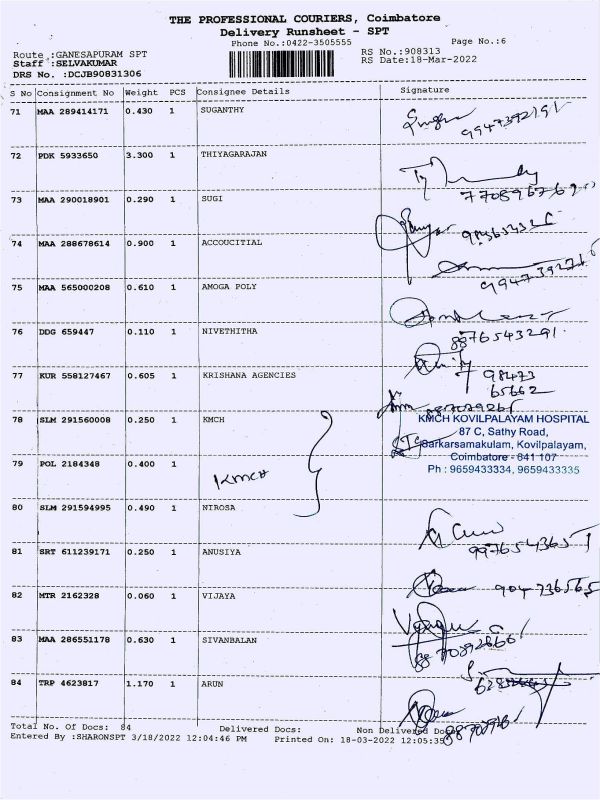 THE PROFESSIONAL COURIERS, Coimbatore
Delivery Runsheet - SPT
Phone No.:0422-3505555
Page No.:6
Route :GANESAPURAM SPT
RS No.:908313
Staff :SELVAKUMAR
RS Date:18-Mar-2022
DRS No. :DCJB90831306
S No Consignment No Weight PCS Consignee Details Signature
71 MAA 289414171 0.430 1 SUGANTHY
72 PDK 5933650 3.300 1 THIYAGARAJAN
73 MAA 290018901 0.290 1 SUGI
74 MAA 288678614 0.900 1 ACCOUCITIAL
75 MAA 565000208 0.610 1 AMOGA POLY
76 DDG 659447 0.110 1 NIVETHITHA
8876543291
77 KUR 558127467 0.605 1 KRISHANA AGENCIES
98473
65662
78 SLM 291560008 0.250 1 KMCH
KMCH KOVILPALAYAM HOSPITAL
87 C, Sathy Road,
Sarkarsamakulam, Kovilpalayam,
Coimbatore - 641 107
Ph : 9659433334, 9659433335
79 POL 2184348 0.400 1 KMCH
80 SLM 291594995 0.490 1 NIROSA
81 SRT 611239171 0.250 1 ANUSIYA
82 MTR 2162328 0.060 1 VIJAYA
83 MAA 286551178 0.630 1 SIVANBALAN
84 TRP 4623817 1.170 1 ARUN
Total No. Of Docs: 84 Delivered Docs: Non Delivered Docs
Entered By :SHARONSPT 3/18/2022 12:04:46 PM Printed On: 18-03-2022 12:05:35